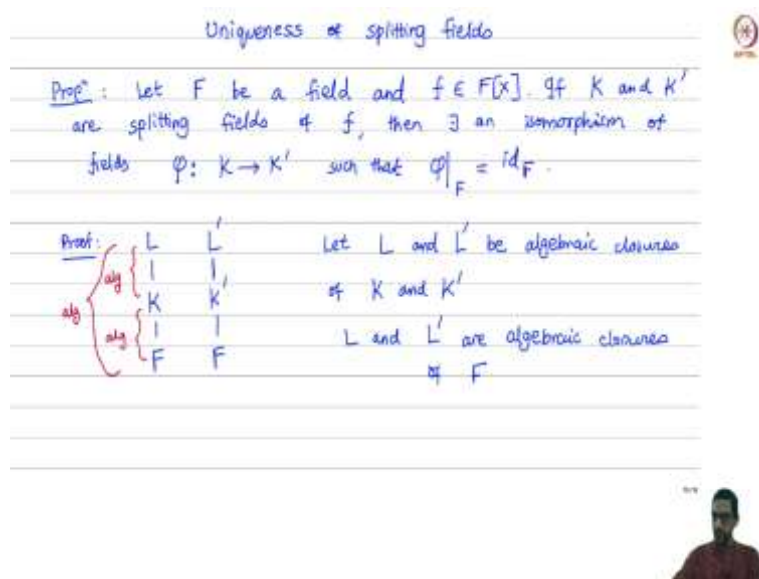 Uniqueness of splitting fields
Propⁿ : Let F be a field and f ∈ F[X]. If K and K'
are splitting fields of f, then ∃ an isomorphism of
fields φ: K → K' such that φ|_F = id_F.
Proof: L L' Let L and L' be algebraic closures
alg K K' of K and K'
alg alg F F L and L' are algebraic closures
of F